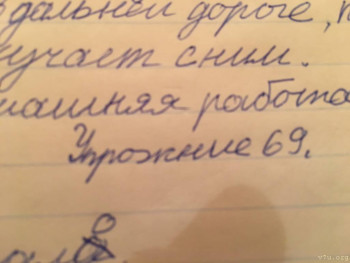 дальней дороге,
учает сним.
машняя работа
Упрожние 69.